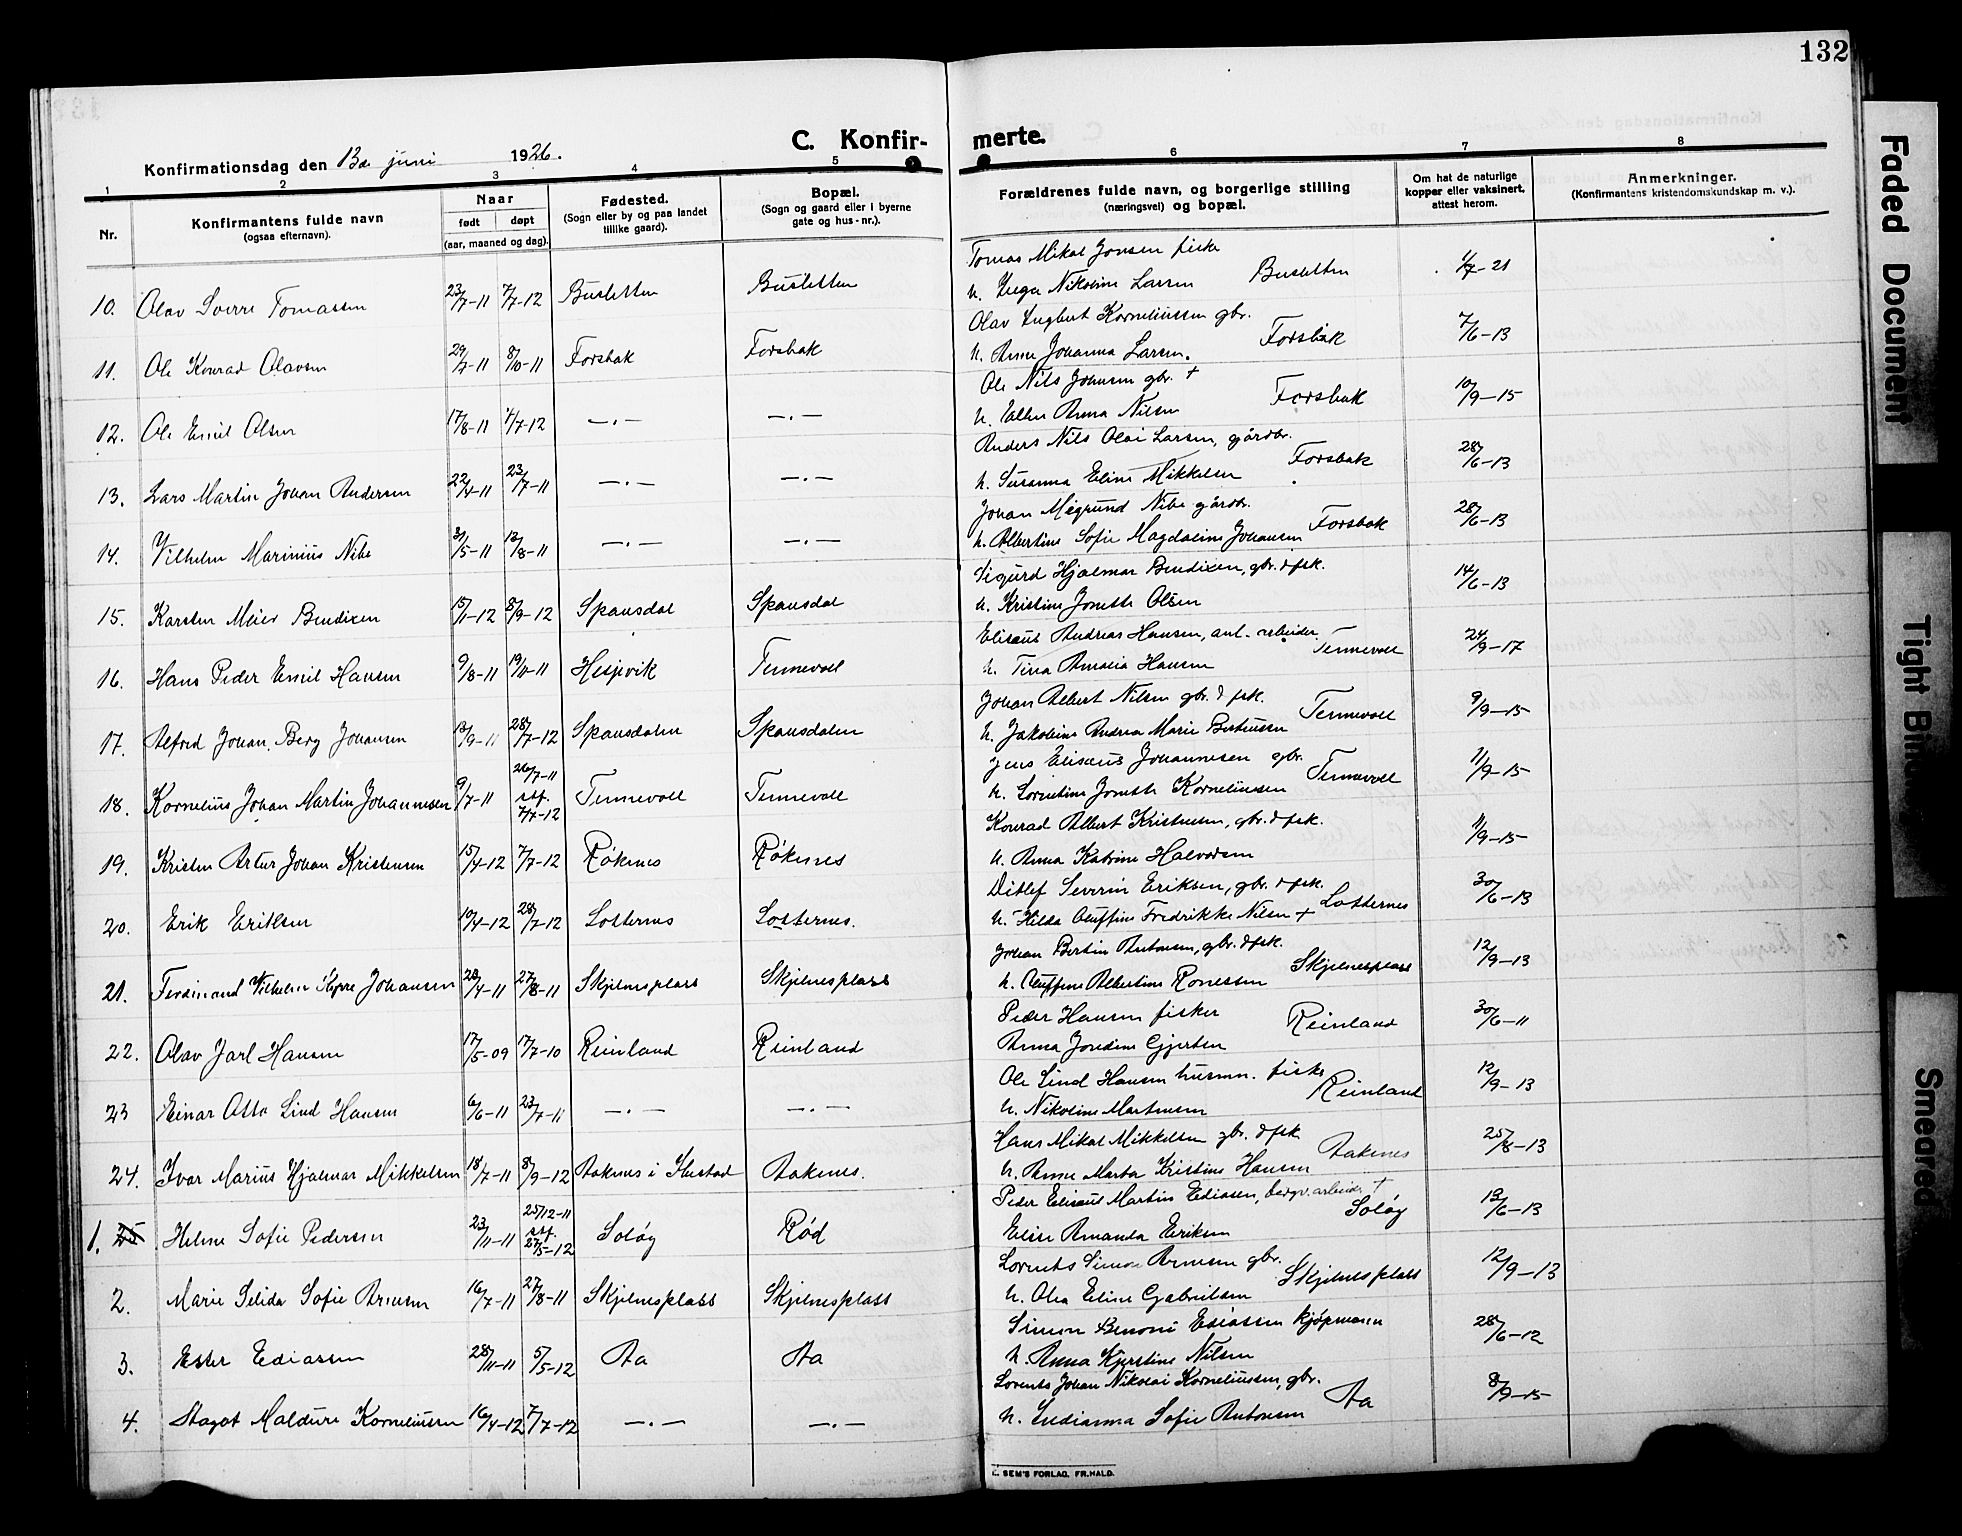 132
C. Konfir- merte.
Konfirmationsdag den 13de juni 1926.
1 2 3 4 5 6 7 8
Nr.
Konfirmantens fulde navn
(ogsaa efternavn).
Naar
født døpt
(aar, maaned og dag).
Fødested.
(Sogn eller by og paa landet
tillike gaard).
Bopæl.
(Sogn og gaard eller i byerne
gate og hus-nr.).
Forældrenes fulde navn, og borgerlige stilling
(næringsvei) og bopæl.
Om hat de naturlige
kopper eller vaksinert.
attest herom.
Anmerkninger.
(Konfirmantens kristendomskundskap m. v.).
Tomas Mikal Jonsen fisker
10. Olav Sverre Tomassen 23/7-11 7/7-12 Busletten Busletten h. Inga Nikoline Larsen Busletten 1/7-21
Olav Ingbert Korneliussen gbr.
11. Ole Konrad Olavsen 29/7-11 8/10-11 Forsbak Forsbak h. Anne Johanna Larsen. Forsbak 7/6-13
Ole Nils Johnsen gbr. +
12. Ole Emil Olsen 17/8-11 7/7-12 —.— —.— h. Ellen Anna Nilsen Forsbak 10/9-15
Anders Nils Olai Larsen, gårdbr.
13. Lars Martin Johan Andersen 22/4-11 23/7-11 —.— —.— h. Susanna Eline Mikkelsen Forsbak 28/6-13
Johan Megrund Nibe gårdbr.
14. Vilhelm Marinius Nibe 31/5-11 13/8-11 —.— —.— h. Albertine Sofie Magdalene Johansen Forsbak 28/6-13
Sigurd Hjalmar Bendixen, gbr. & fsk.
15. Karsten Meier Bendixen 15/1-12 8/9-12 Spansdal Spansdal h. Kristine Jonette Olsen 14/6-13
Elisæus Andreas Hansen, anl.-arbeider
16. Hans Peder Emil Hansen 9/8-11 19/11-11 Hesjevik Tennevoll h. Tina Amalia Hansen Tennevoll 24/9-17
Johan Albert Nilsen gbr. & fsk.
17. Alfred Johan Berg Johansen 13/9-11 28/7-12 Spansdalen Spansdalen h. Jakobine Andrea Marie Berteussen Tennevoll 9/9-15
Jens Elisæus Johannesen gbr
18. Kornelius Johan Martin Johannesen 9/7-11 26/7-11 stf. 7/7-12 Tennevoll Tennevoll h. Lorentine Jonette Korneliussen Tennevoll 11/9-15
Konrad Albert Kristensen, gbr. & fsk.
19. Kristen Artur Johan Kristensen 15/4-12 7/7-12 Røkenes Røkenes h. Anna Katrine Halvorsen 11/9-15
Ditlef Severin Eriksen, gbr. & fsk.
20. Erik Eriksen 10/4-12 28/7-12 Losternes Losternes. h. Hilda Oluffine Fredrikke Nilsen + Losternes 30/6-13
Johan Bertin Antonsen, gbr. & fsk.
21. Ferdinand Vilhelm Kyrre Johansen 28/4-11 27/8-11 Skjelnesplass Skjelnesplass h. Oluffine Albertine Ronessen Skjelnesplass 12/9-13
Peder Hansen fisker
22. Olav Jarl Hansen 17/5-09 17/7-10 Reinland Reinland Anna Jordine Gjertsen Reinland 30/6-11
Ole Lind Hansen husmn. fisker
23 Einar Otto Lind Hansen 6/6-11 23/7-11 —.— —.— h. Nikoline Martinsen Reinland 12/9-13
Hans Mikal Mikkelsen gbr. & fsk.
24. Ivar Marius Hjalmar Mikkelsen 18/7-11 8/9-12 Aakenes i Ibestad Aakenes. h. Anne Marta Kristine Hansen Aakenes 25/8-13
Peder Elisæus Martin Ediasen, bergv.arbeider +
1. 25 Helene Sofie Pedersen 23/11-11 25/12-11 stf. 27/5-12 Soløy Rød Elise Amanda Eriksen Soløy 13/6-13
Lorents Simon Arnesen gbr.
2. Marie Selida Sofie Arnesen 16/7-11 27/8-11 Skjelnesplass Skjelnesplass h. Olea Eline Gabrielsen Skjelnesplass 12/9-13
Simon Benoni Ediassen kjøpmann
3. Ester Ediassen 28/11-11 5/5-12 Aa Aa h. Anna Kjerstine Nilsen 28/6-12
Lorents Johan Nikolai Korneliussen, gbr.
4. Magot Maldure Korneliussen 16/4-12 7/7-12 —.— —.— h. Indianna Sofie Antonsen Aa 8/9-15
E. SEM'S FORLAG, FR.HALD.
Faded Document
Tight
Smeared